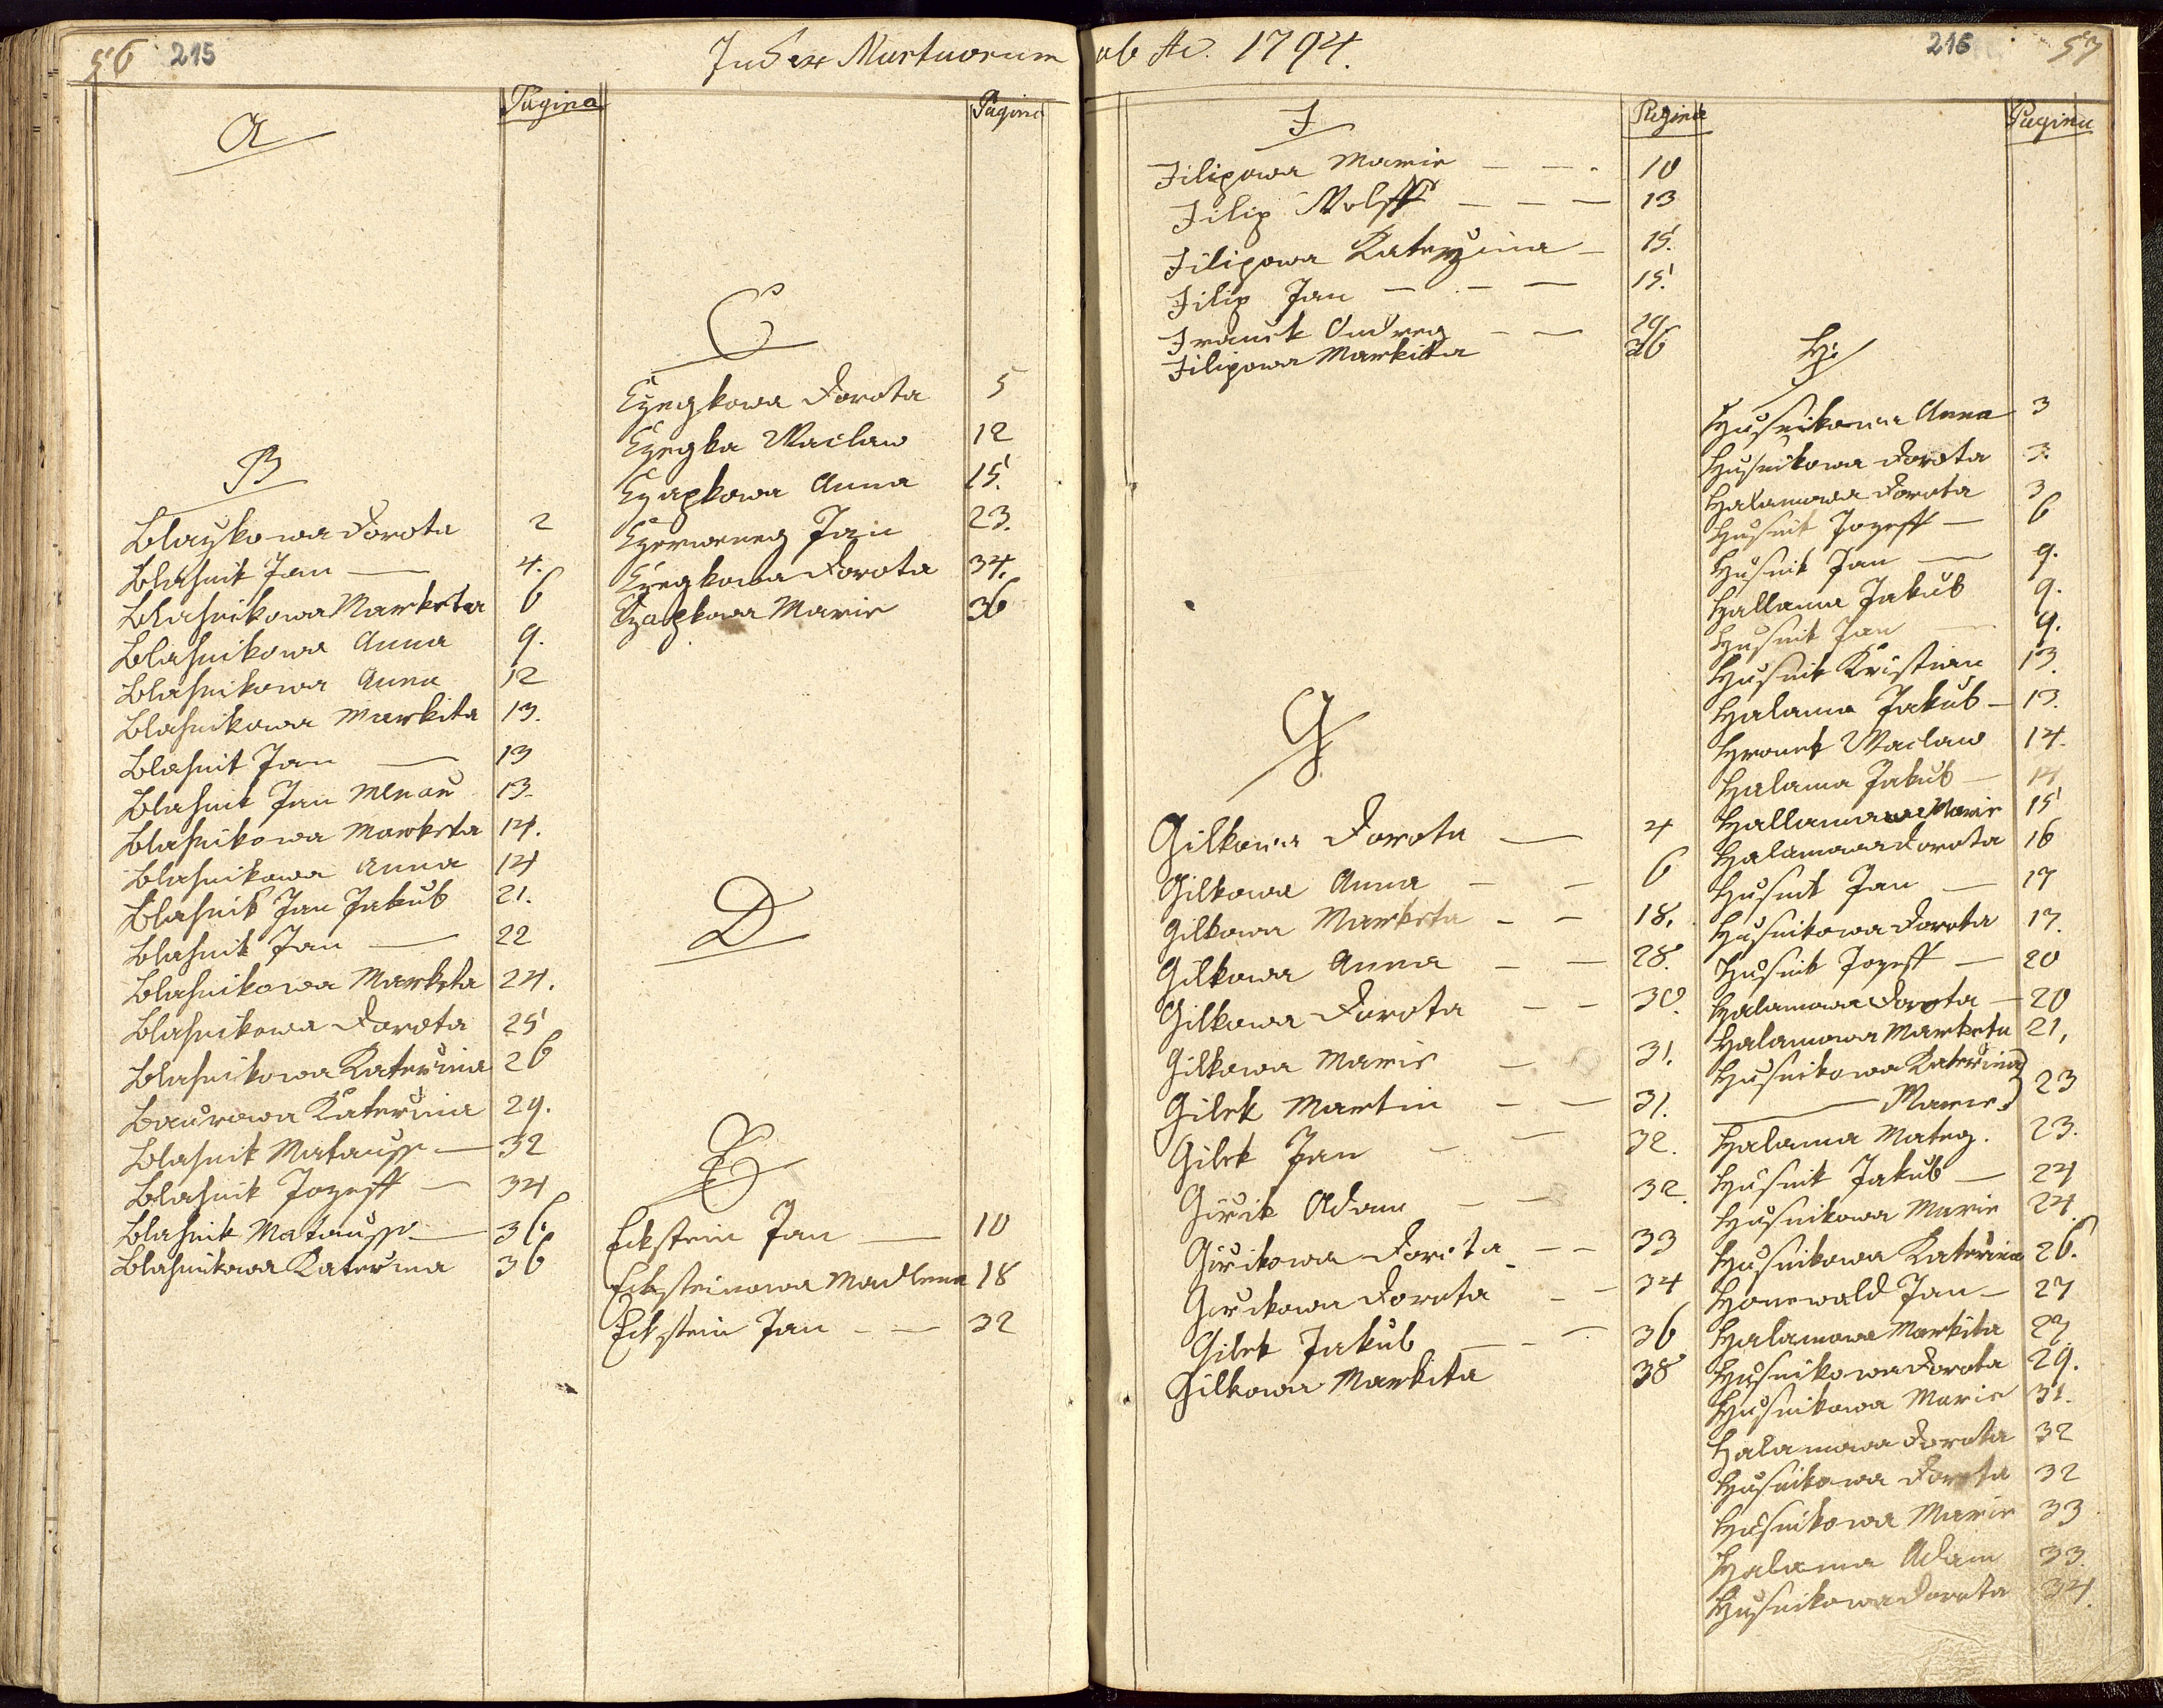 56 215
Index Mortuorum
Pagina
Pagina
A
B
Blazkowa Dorota 2
Blahnik Jan — 4.
Blahnikowa Marketa 6
Blahnikowa Anna 9.
Blahnikowa Anna 12
Blahnikowa Markita 13.
Blahnik Jan — 13
Blahnik Jan 13.
Blahnikowa Marketa 14.
Blahnikowa Anna 14
Blahnik Jan Jakub 21.
Blahnik Jan — 22
Blahnikowa Marketa 24.
Blahnikowa Dorota 25
Blahnikowa Kateřina 26
Baurowa Kateřina 29.
Blahnik Matauss — 32
Blahnik Jozeff — 34
Blahnik Matauss — 36.
Blahnikowa Kateřina 36
C
Czegkowa Dorota 5
Czegka Waclaw 12
Czapkowa Anna 15.
Czerweneg Jan 23.
Czegkowa Dorota 34.
Czapkowa Marie 36
D
E
Eckstein Jan — 10
Ecksteinowa Madlena 18
Eckstein Jan — — 32
ab Ao. 1794.
216 57
Pagina
Pagina
F
Filipowa Marie — — - 10
Filip Wolff — — — 13
Filipowa Katerzina — 15.
Filip Jan — - — 15.
Franek Ondreg — — 29
Filipowa Markita 36
G
Gilkowa Dorota — 4
Gilkowa Anna — — 6
Gilkowa Marketa - — 18.
Gilkowa Anna — — 28.
Gilkowa Dorota — — 30.
Gilkowa Marie — 31.
Gilek Martin — — 31.
Gilek Jan - — 32.
Giřik Adam — — 32.
Giřikowa Dorota — — 33
Giřikowa Dorota — — 34
Gilek Jakub — — 36
Gilkowa Markita 38
H
Husnikowa Anna 3
Husnikowa Dorota 3.
Halamowa Dorota 3
Husnik Jozeff — 6
Husnik Jan — 9.
Hallama Jakub 9.
Husnik Jan — 9.
Husnik Kristian 13.
Halama Jakub — 13.
Hronek Waclaw 14.
Halama Jakub — 14
Hallamowa Marie 15
Halamowa Dorota 16
Husnik Jan — 17
Husnikowa Dorota 17.
Husnik Jozeff — 20
Halamowa Dorota — 20
Halamowa Marketa 21,
Husnikowa Kateřina
— Marie } 23
Halama Mateg. 23.
Husnik Jakub — 24
Husnikowa Marie 24.
Husnikowa Kateřina 26.
Honewald Jan — 27
Halamowa Markita 27.
Husnikowa Dorota 29.
Husnikowa Marie 31.
Halamowa Dorota 32
Husnikowa Dorota 32
Husnikowa Marie 33
Halama Adam 33.
Husnikowa Dorota 34.